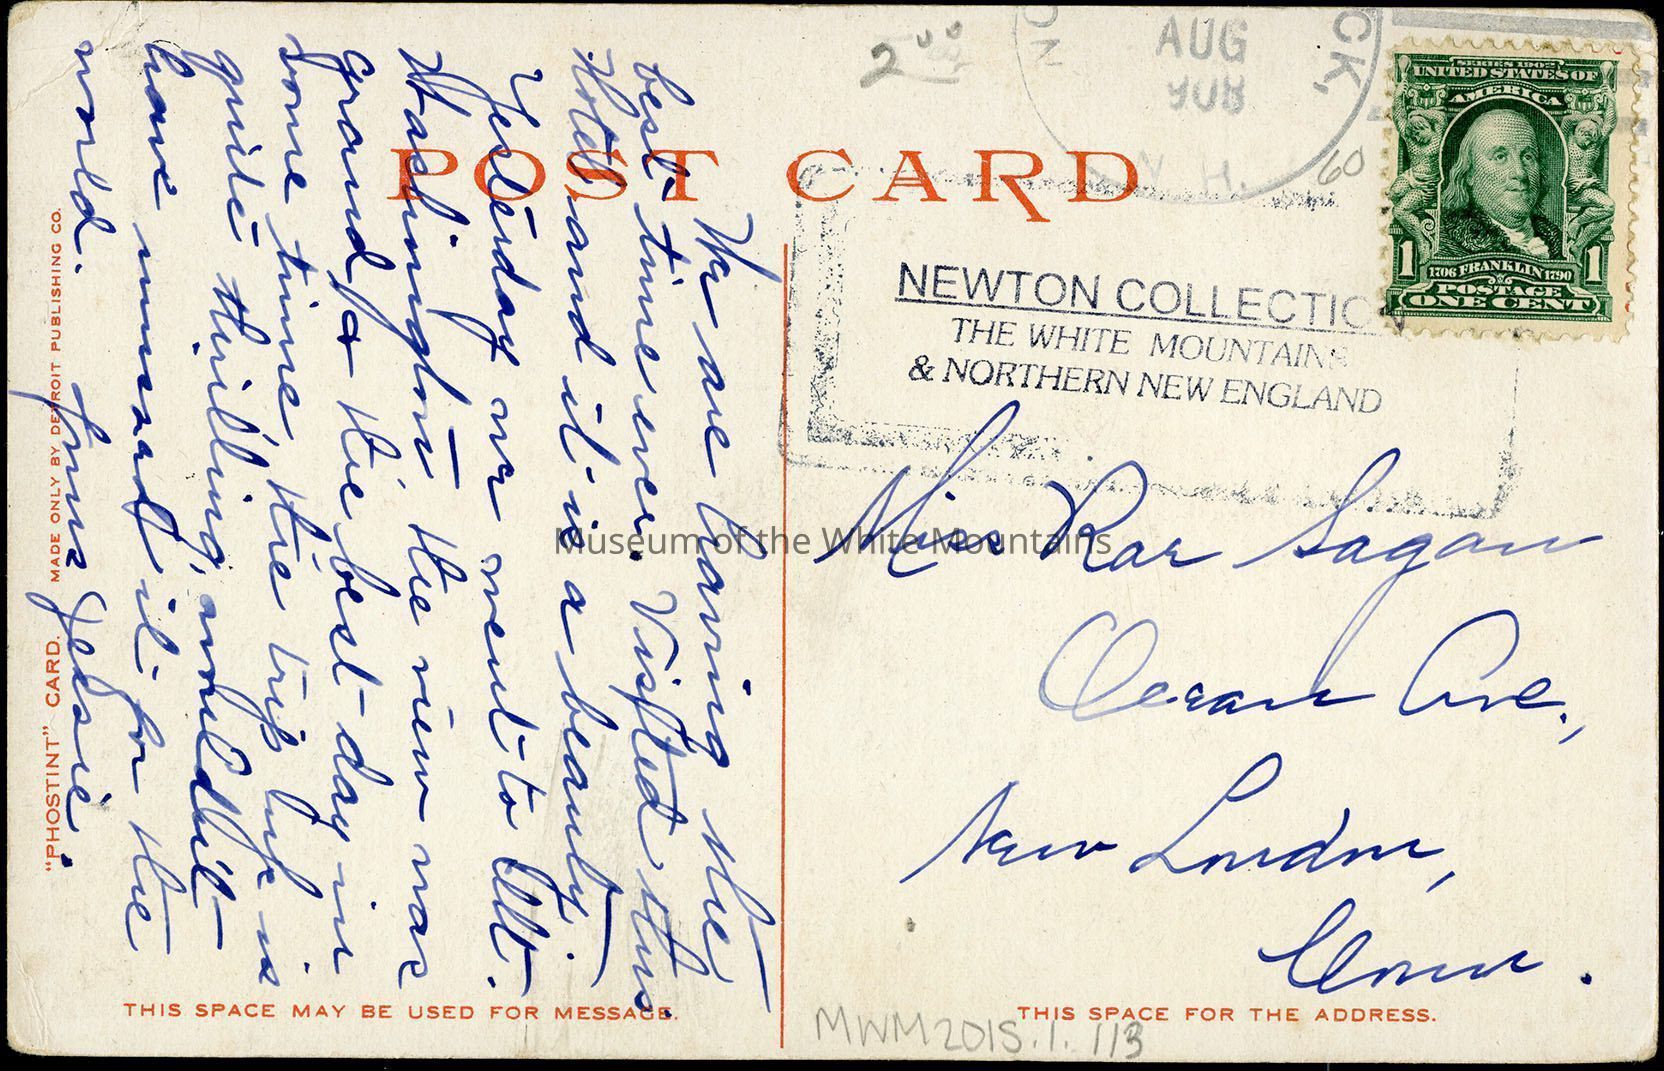 2 00
AUG
CK,
ON
N. H.
60
SERIES 1902
UNITED STATES OF
AMERICA
1 1
1706 FRANKLIN 1790
POSTAGE
ONE CENT
POST CARD
NEWTON COLLECTION
THE WHITE MOUNTAINS
& NORTHERN NEW ENGLAND
We are having the
best time ever. Visited this
Hotel and it is a beauty.
Yesterday we went to Mt.
Washington the view was
Grand & the best day in
some time the trip up is
quite thrilling, wouldn't
have missed it for the
world.
Jessie.
Miss Rae Sagan
Ocean Ave.,
New London,
Conn.
"PHOSTINT" CARD. MADE ONLY BY DETROIT PUBLISHING CO.
THIS SPACE MAY BE USED FOR MESSAGE.
THIS SPACE FOR THE ADDRESS.
MWM2015.1.113
Museum of the White Mountains